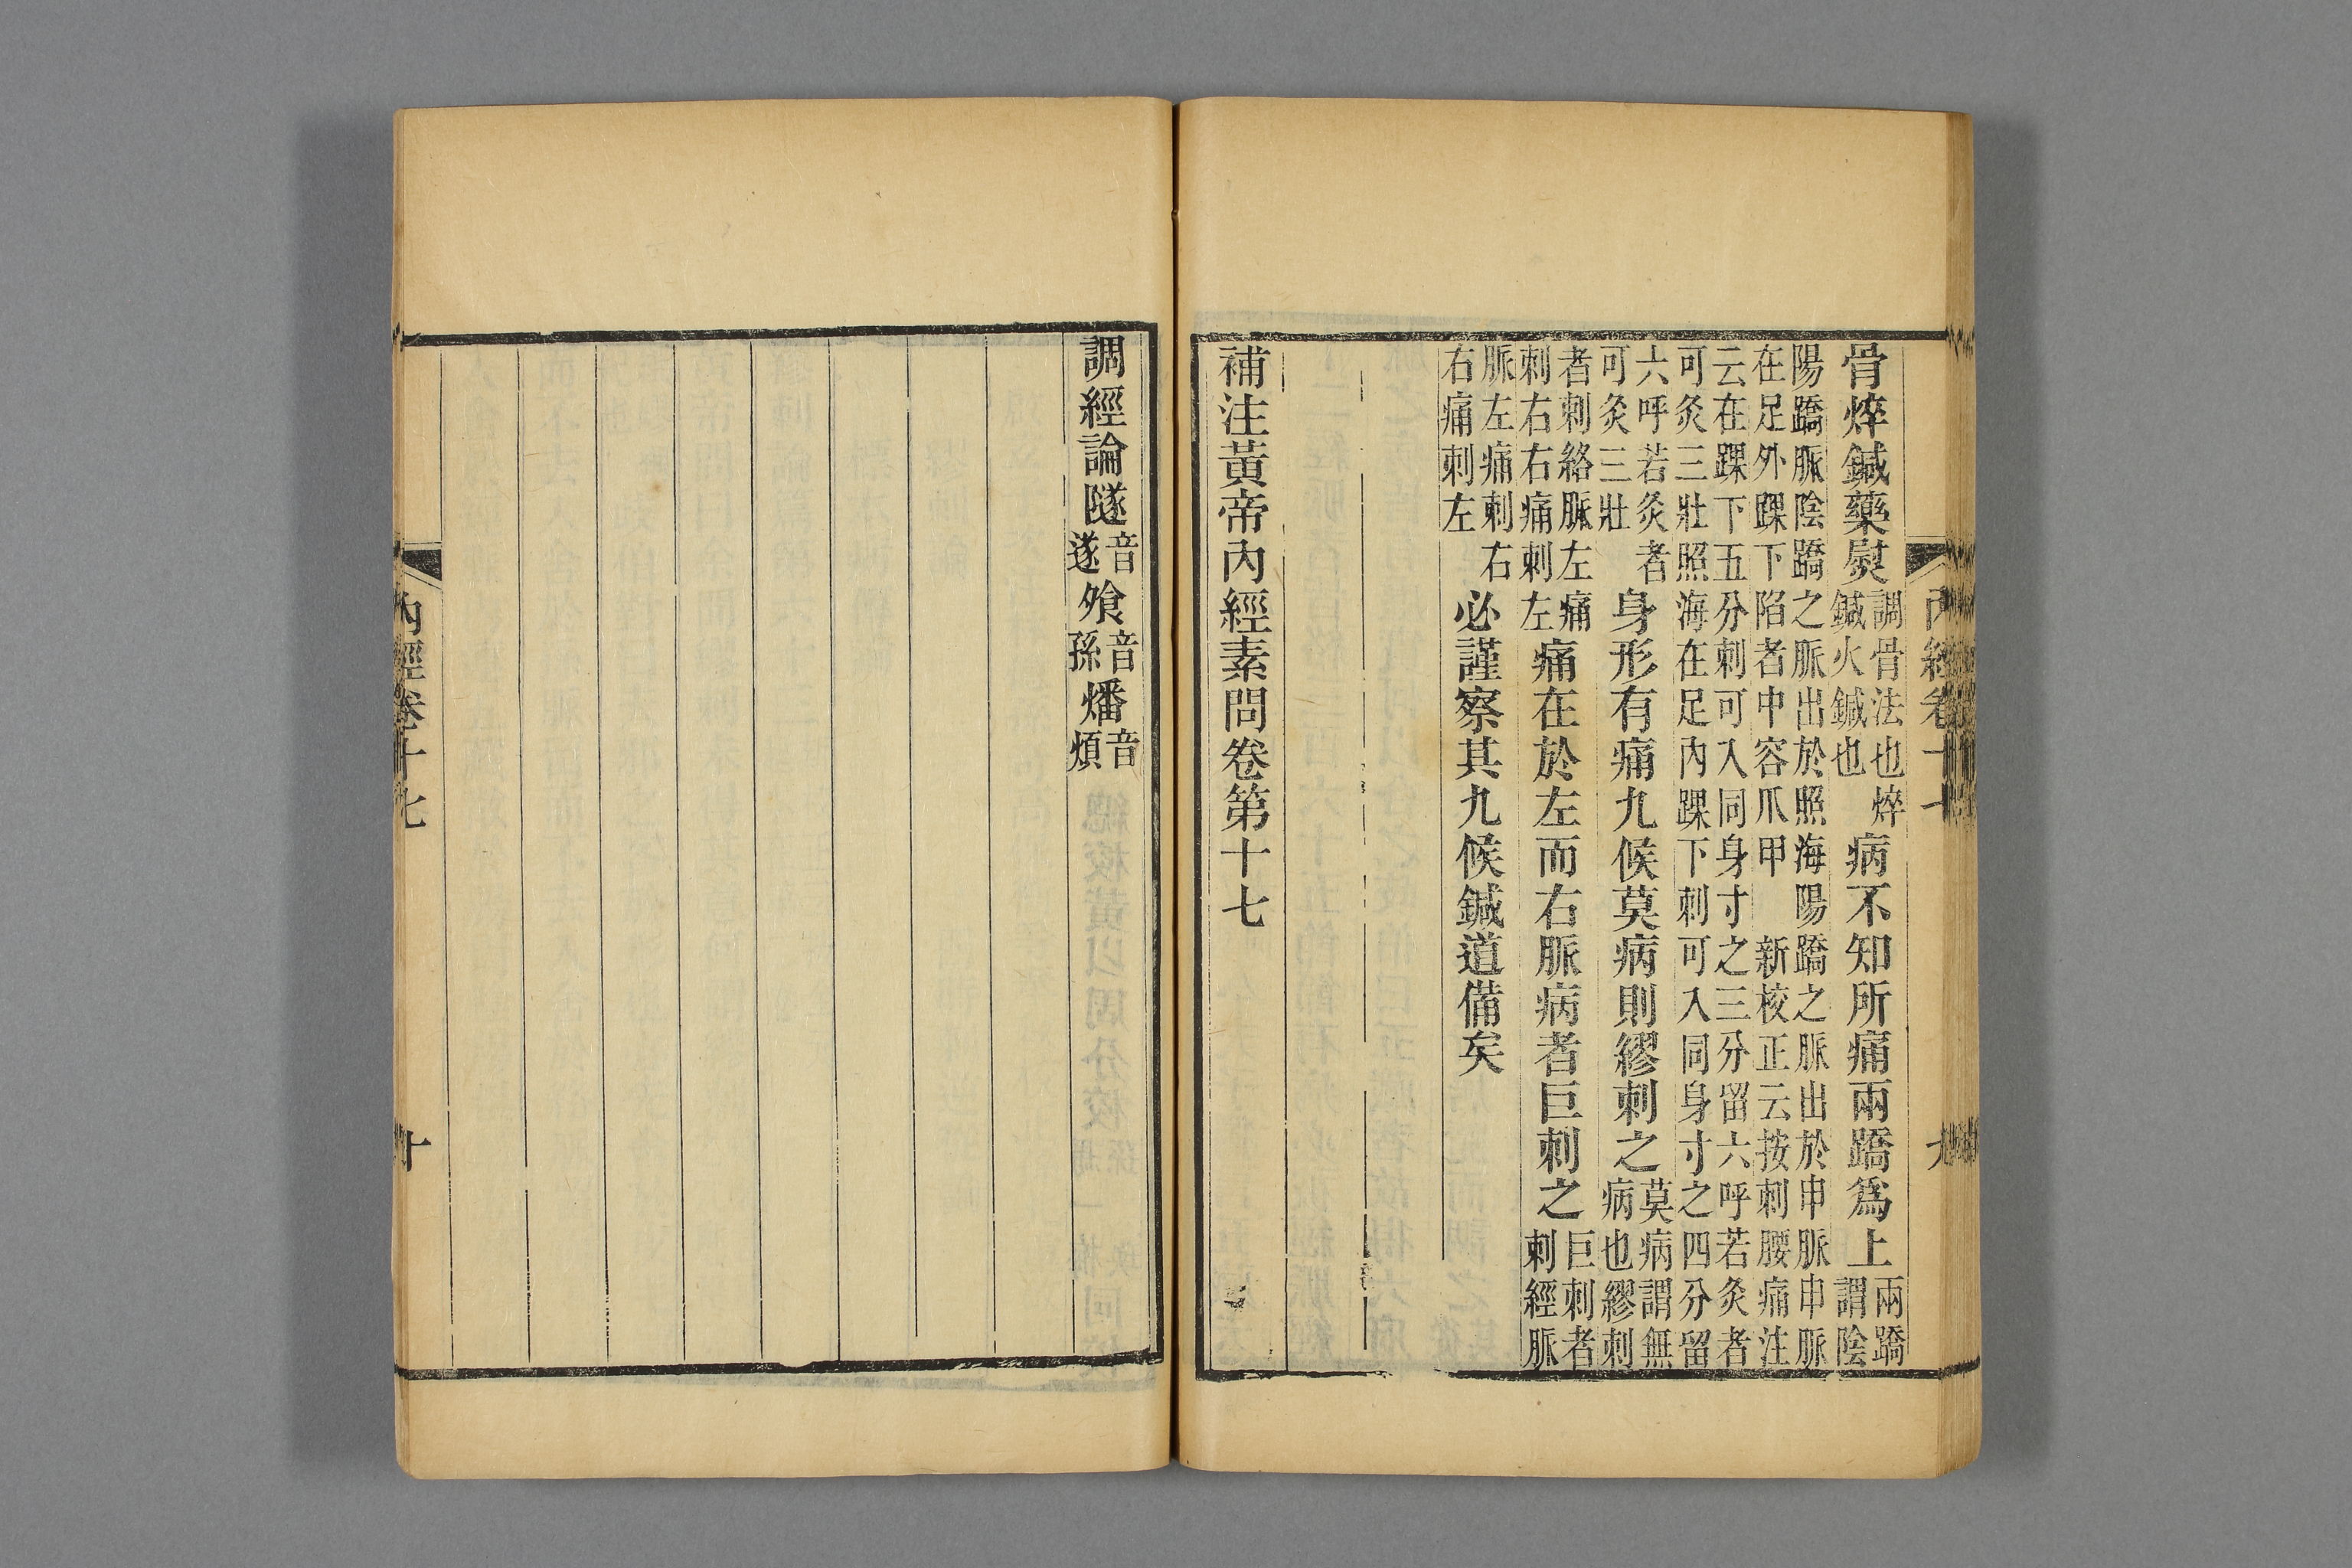 骨焠鍼藥熨調骨法也焠鍼火鍼也病不知所痛兩蹻爲上兩蹻謂陰
陽蹻脈陰蹻之脈出於照海陽蹻之脈出於申脈申脈
在足外踝下陷者中容爪甲　新校正云按刺腰痛注
云在踝下五分刺可入同身寸之三分留六呼若灸者
可灸三壯照海在足內踝下刺可入同身寸之四分留
六呼若灸者可灸三壯身形有痛九候莫病則繆刺之莫病謂無病也繆刺
者刺絡脈左痛刺右右痛刺左痛在於左而右脈病者巨刺之巨刺者刺經脈
脈左痛刺右右痛刺左必謹察其九候鍼道備矣
補注黃帝內經素問卷第十七
調經論隧音遂飱音孫燔音煩
內經卷十七